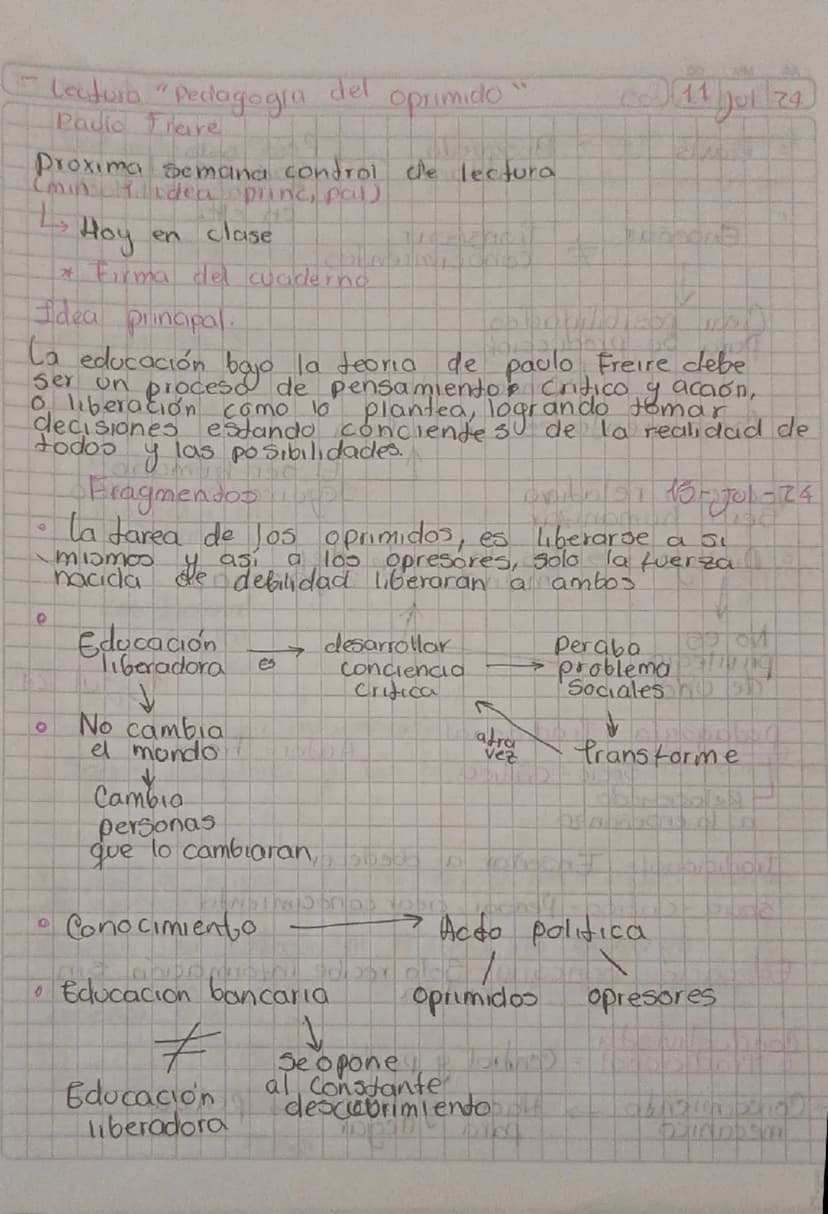 - Lectura "Pedagogia del oprimido" 11 Jul 24
Paulo Freire
Proxima semana control de lectura
(min 1 idea principal)
↳ Hoy en clase
* Firma del cuaderno
Idea principal.
La educación bajo la teoria de paolo Freire debe
ser un proceso de pensamiento critico y acción,
o liberación como lo plantea, logrando tomar
decisiones estando concientesu de la realidad de
todos y las posibilidades.
Fragmentos 15-Jul-24
• La tarea de los oprimidos, es liberarse a si
mismos y asi a los opresores, solo la fuerza
nacida de debilidad liberaran a ambos
•
Educación liberadora → es desarrollar conciencia critica → Peraba problema Sociales
↓
• No cambia
el mondo
↓ transforme
atra vez
↓
Cambia
personas
que lo cambiaran,
• Conocimiento → Acto politica
• Educacion bancaria oprimidos opresores
≠ ↓
Se opone
al constante
descubrimiento
Educación
liberadora